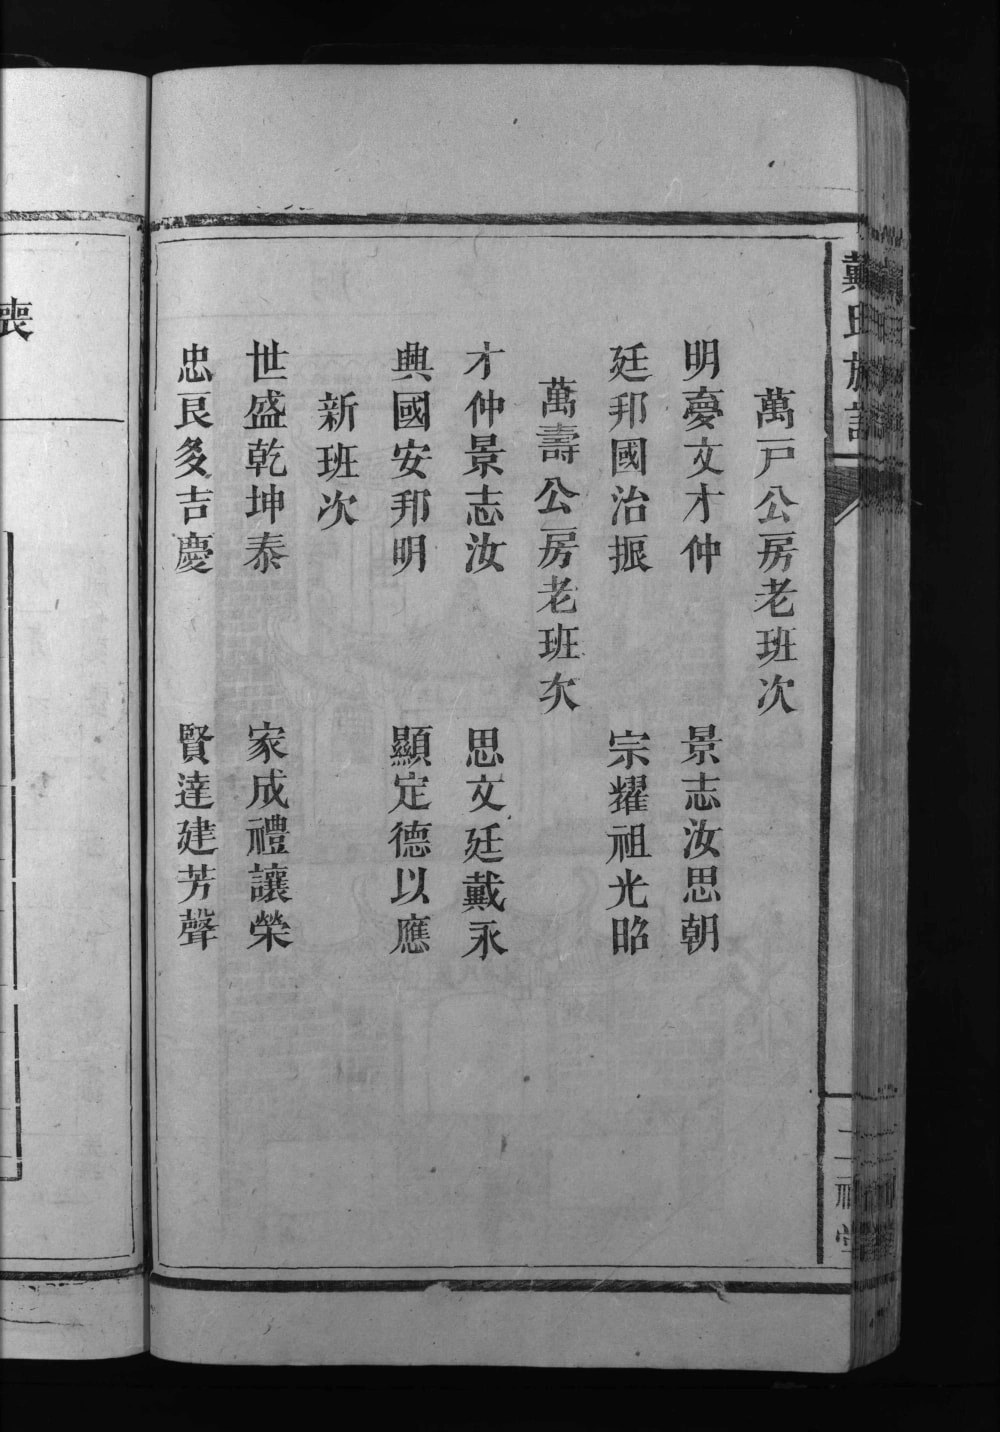 戴氏族譜
萬戸公房老班次
明夢文才仲　景志汝思朝
廷邦國治振　宗耀祖光昭
萬壽公房老班次
才仲景志汝　思文廷戴永
典國安邦明　顯定德以應
新班次
世盛乾坤泰　家成禮讓榮
忠良多吉慶　賢達建芳聲
喪